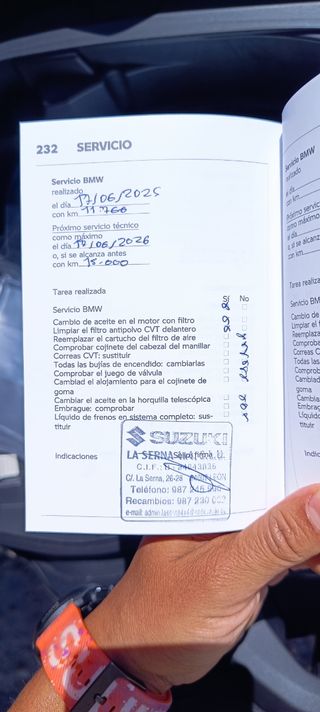 232 SERVICIO
Servicio BMW
realizado
el día 17/06/2025
con km 11.760
Próximo servicio técnico
como máximo
el día 17/06/2026
o, si se alcanza antes
con km 15.000
Tarea realizada
Sí No
Servicio BMW
Cambio de aceite en el motor con filtro
Limpiar el filtro antipolvo CVT delantero
Reemplazar el cartucho del filtro de aire
Comprobar cojinete del cabezal del manillar
Correas CVT: sustituir
Todas las bujías de encendido: cambiarlas
Comprobar el juego de válvula
Cambiad el alojamiento para el cojinete de
goma
Cambiar el aceite en la horquilla telescópica
Embrague: comprobar
Líquido de frenos en sistema completo: sus-
tituir
Indicaciones
SUZUKI
LA SERNA
C.I.F.:
C/. La Serna, 26-28
Teléfono: 987
Recambios: 987 230
e-mail:
Servicio BMW
realizado
el día
con km
Próximo servic
como máximo
el día
o, si se alcanz
con km
Tarea realiza
Servicio BM
Cambio de
Limpiar el
Reemplaz
Comproba
Correas C
Todas las
Comprob
Cambiad
goma
Cambia
Embra
Líquido
tituir
Indica